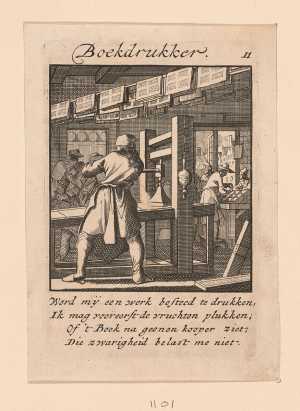 Boekdrukker.
11
Word mÿ een werk besteed te drukken,
Ik mag vooreerst de vruchten plukken;
Of 't Boek na geenen kooper ziet;
Die zwarigheid belast me niet.
1101